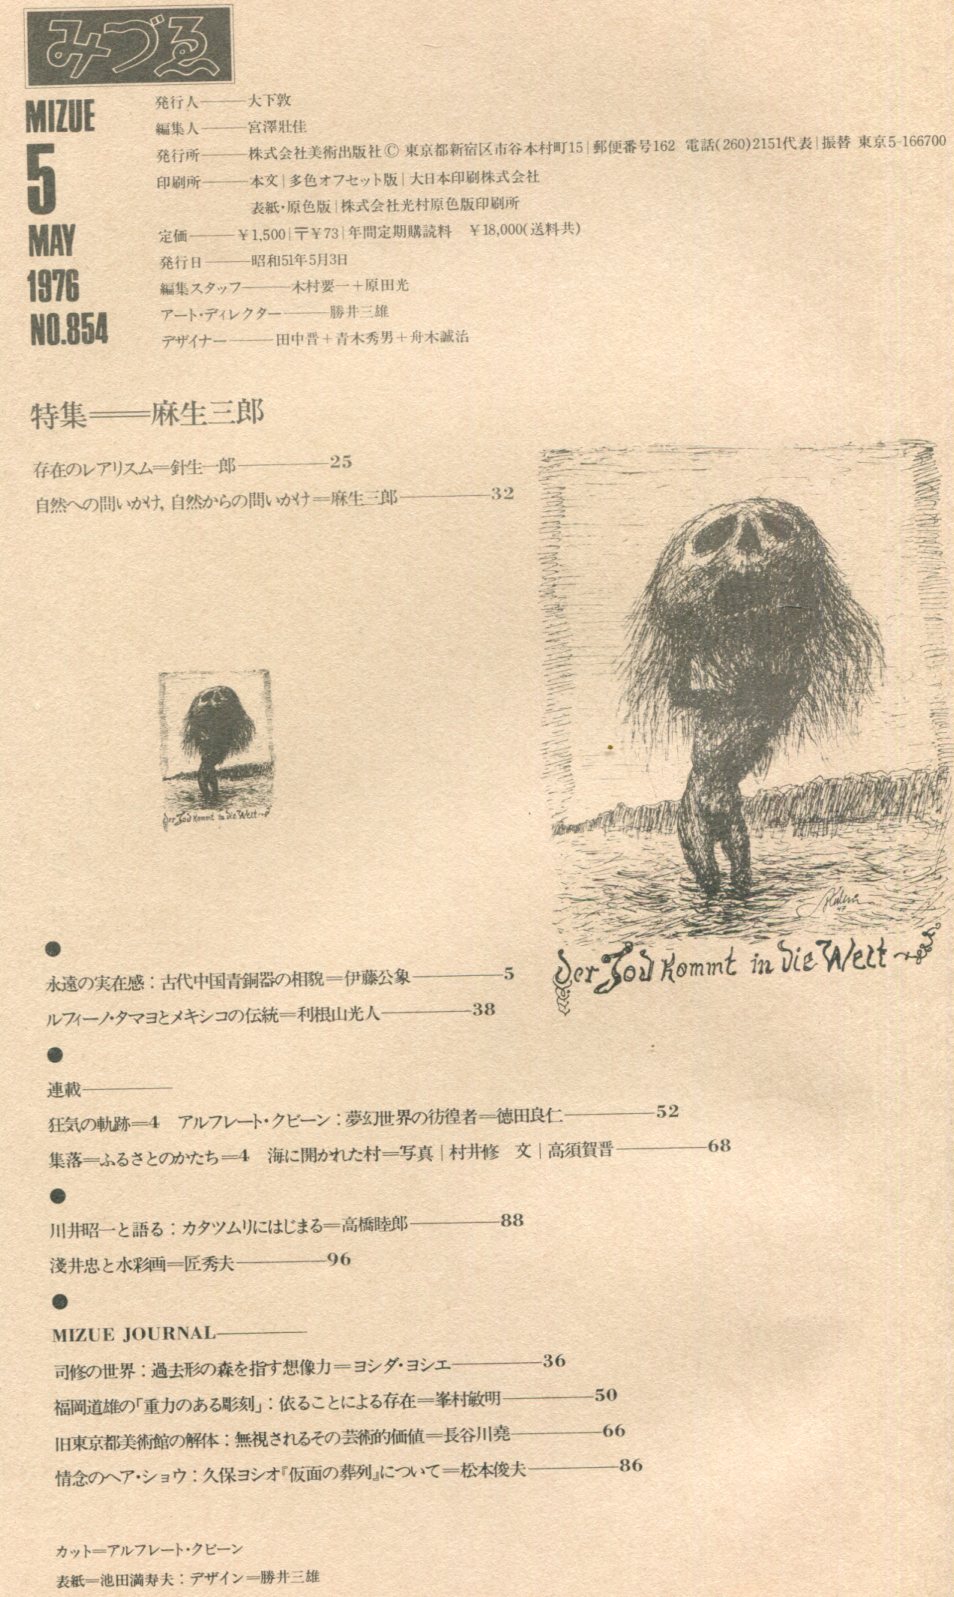 みづゑ
MIZUE
5
MAY
1976
NO.854
発行人───大下敦
編集人───宮澤壯佳
発行所───株式会社美術出版社© 東京都新宿区市谷本村町15|郵便番号162 電話(260)2151代表|振替 東京5-166700
印刷所───本文|多色オフセット版|大日本印刷株式会社
表紙・原色版|株式会社光村原色版印刷所
定価───¥1,500|〒¥73|年間定期購読料 ¥18,000(送料共)
発行日───昭和51年5月3日
編集スタッフ───木村要一+原田光
アート・ディレクター───勝井三雄
デザイナー───田中晋+青木秀男+舟木誠治
特集══麻生三郎
存在のレアリスム=針生一郎───25
自然への問いかけ, 自然からの問いかけ=麻生三郎───32
der Tod kommt in die Welt
der Tod kommt in die Welt
●
永遠の実在感：古代中国青銅器の相貌=伊藤公象───5
ルフィーノ・タマヨとメキシコの伝統=利根山光人───38
●
連載───
狂気の軌跡=4 アルフレート・クビーン：夢幻世界の彷徨者=徳田良仁───52
集落=ふるさとのかたち=4 海に開かれた村=写真|村井修 文|高須賀晋───68
●
川井昭一と語る：カタツムリにはじまる=高橋睦郎───88
淺井忠と水彩画=匠秀夫───96
●
MIZUE JOURNAL───
司修の世界：過去形の森を指す想像力=ヨシダ・ヨシエ───36
福岡道雄の「重力のある彫刻」：依ることによる存在=峯村敏明───50
旧東京都美術館の解体：無視されるその芸術的価値=長谷川堯───66
情念のヘア・ショウ：久保ヨシオ『仮面の葬列』について=松本俊夫───86
カット=アルフレート・クビーン
表紙=池田満寿夫：デザイン=勝井三雄